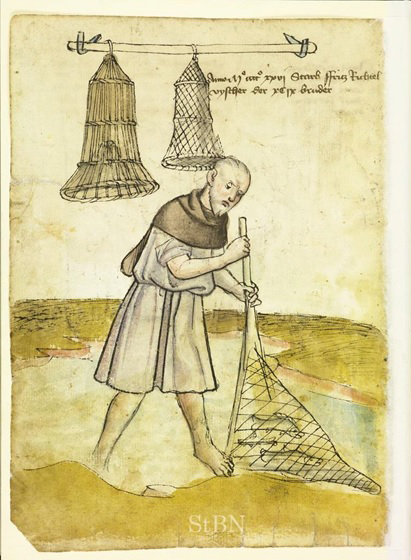 Anno M° cccc° xxvj Starb ffritz Kichtel
vyscher der xCIX bruder
StBN